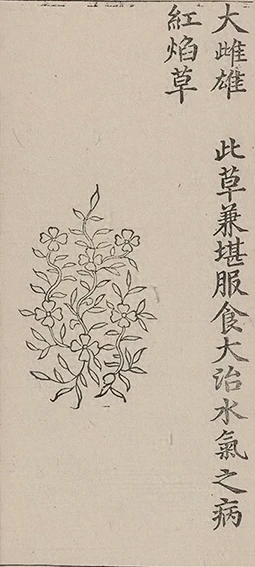 大雌雄　此草兼堪服食大治水氣之病
紅焰草